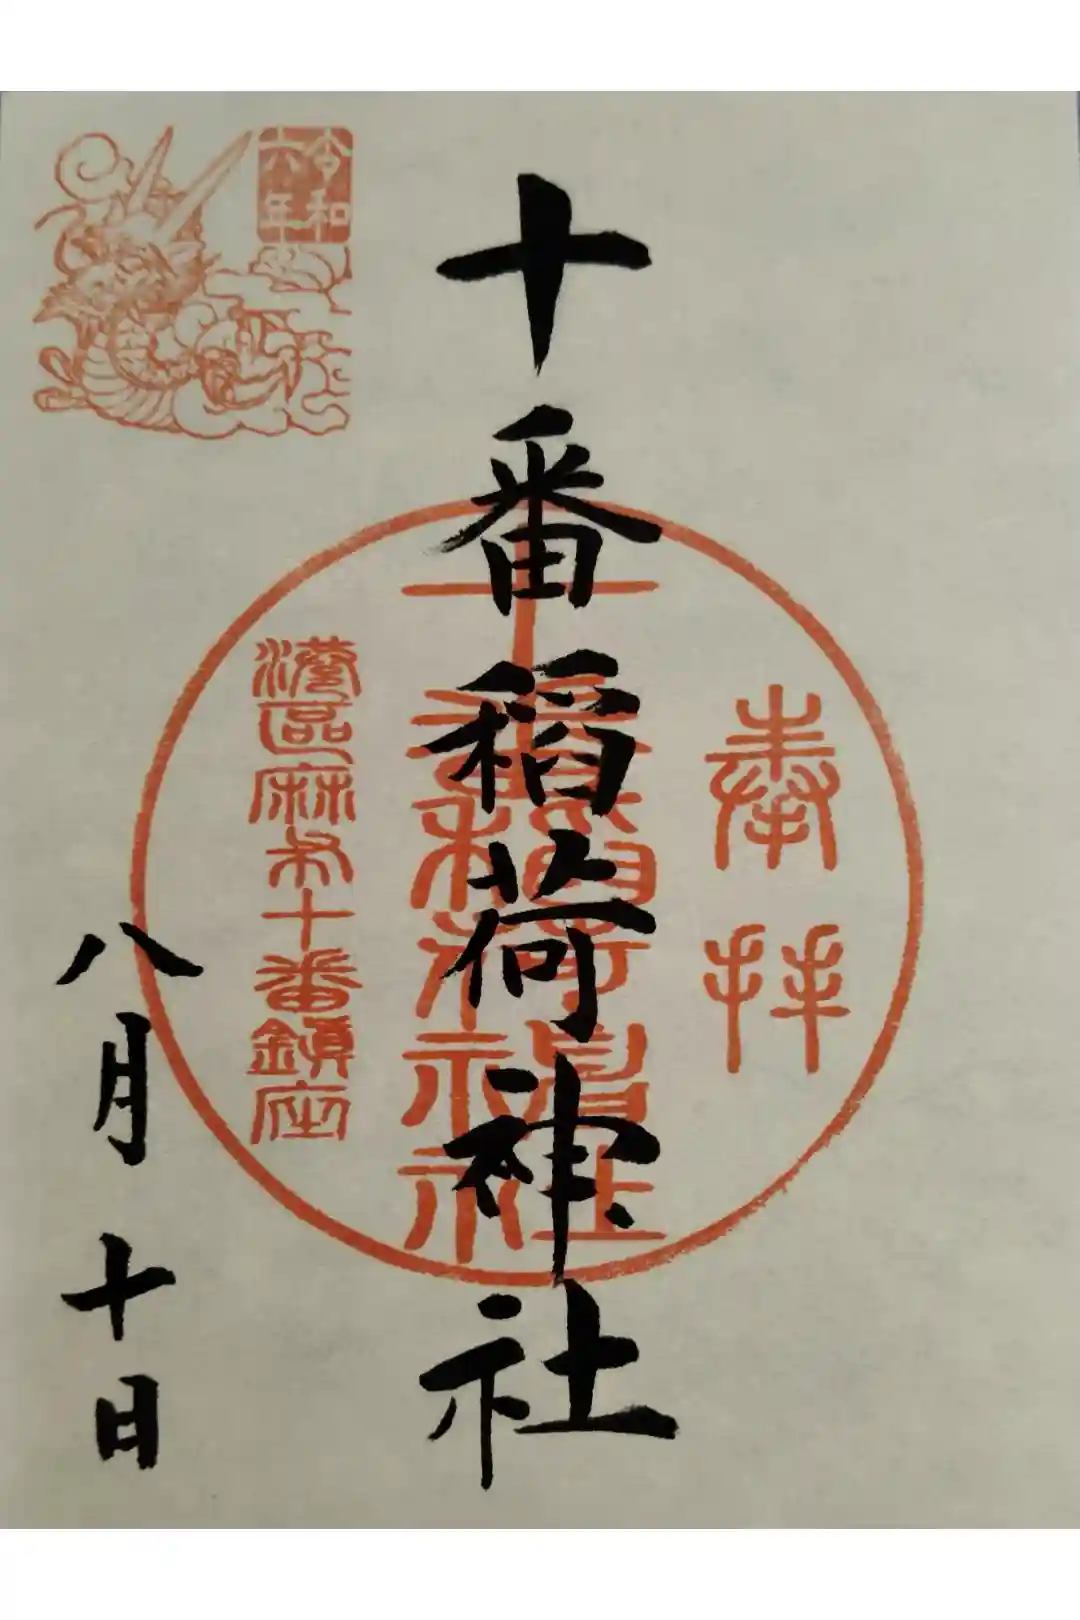 奉拝
十番稲荷神社
十番稲荷神社
港區麻布十番鎮座
令和六年
八月十日